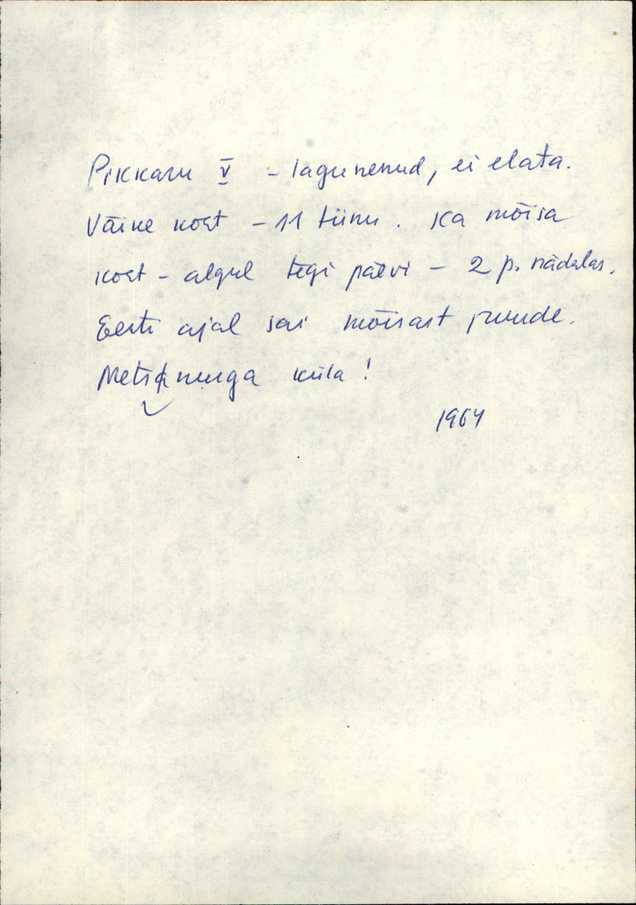 Pikkaru V - lagunenud, ei elata.
Väike koht - 11 tiinu. Ka mõisa
koht - algul tegi päevi - 2 p. nädalas.
Eesti ajal sai mõisast juurde.
küla!
1964